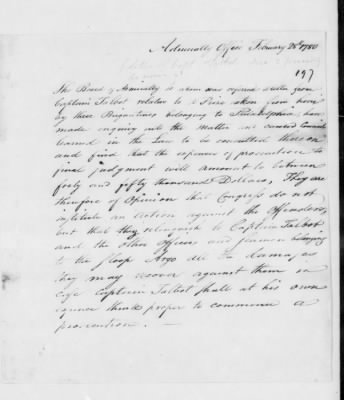 Admiralty Office February 28th 1780
197
The Board of Admiralty to whom was referred a letter from
Captain Talbot relative to a Prize taken from him
by three Brigantines belonging to Philadelphia, have
made enquiry into the Matter and caused Council
learned in the Law to be consulted thereon
and find that the expences of prosecution to
final judgment will amount to between
forty and fifty thousand Dollars, They are
therefore of Opinion that Congress do not
institute an action against the Offenders,
but that they relinquish to Captain Talbot
and the other officers and seamen belonging
to the sloop Argo all the damages
they may recover against them in
case Captain Talbot shall at his own
expence think proper to commence a
prosecution. —